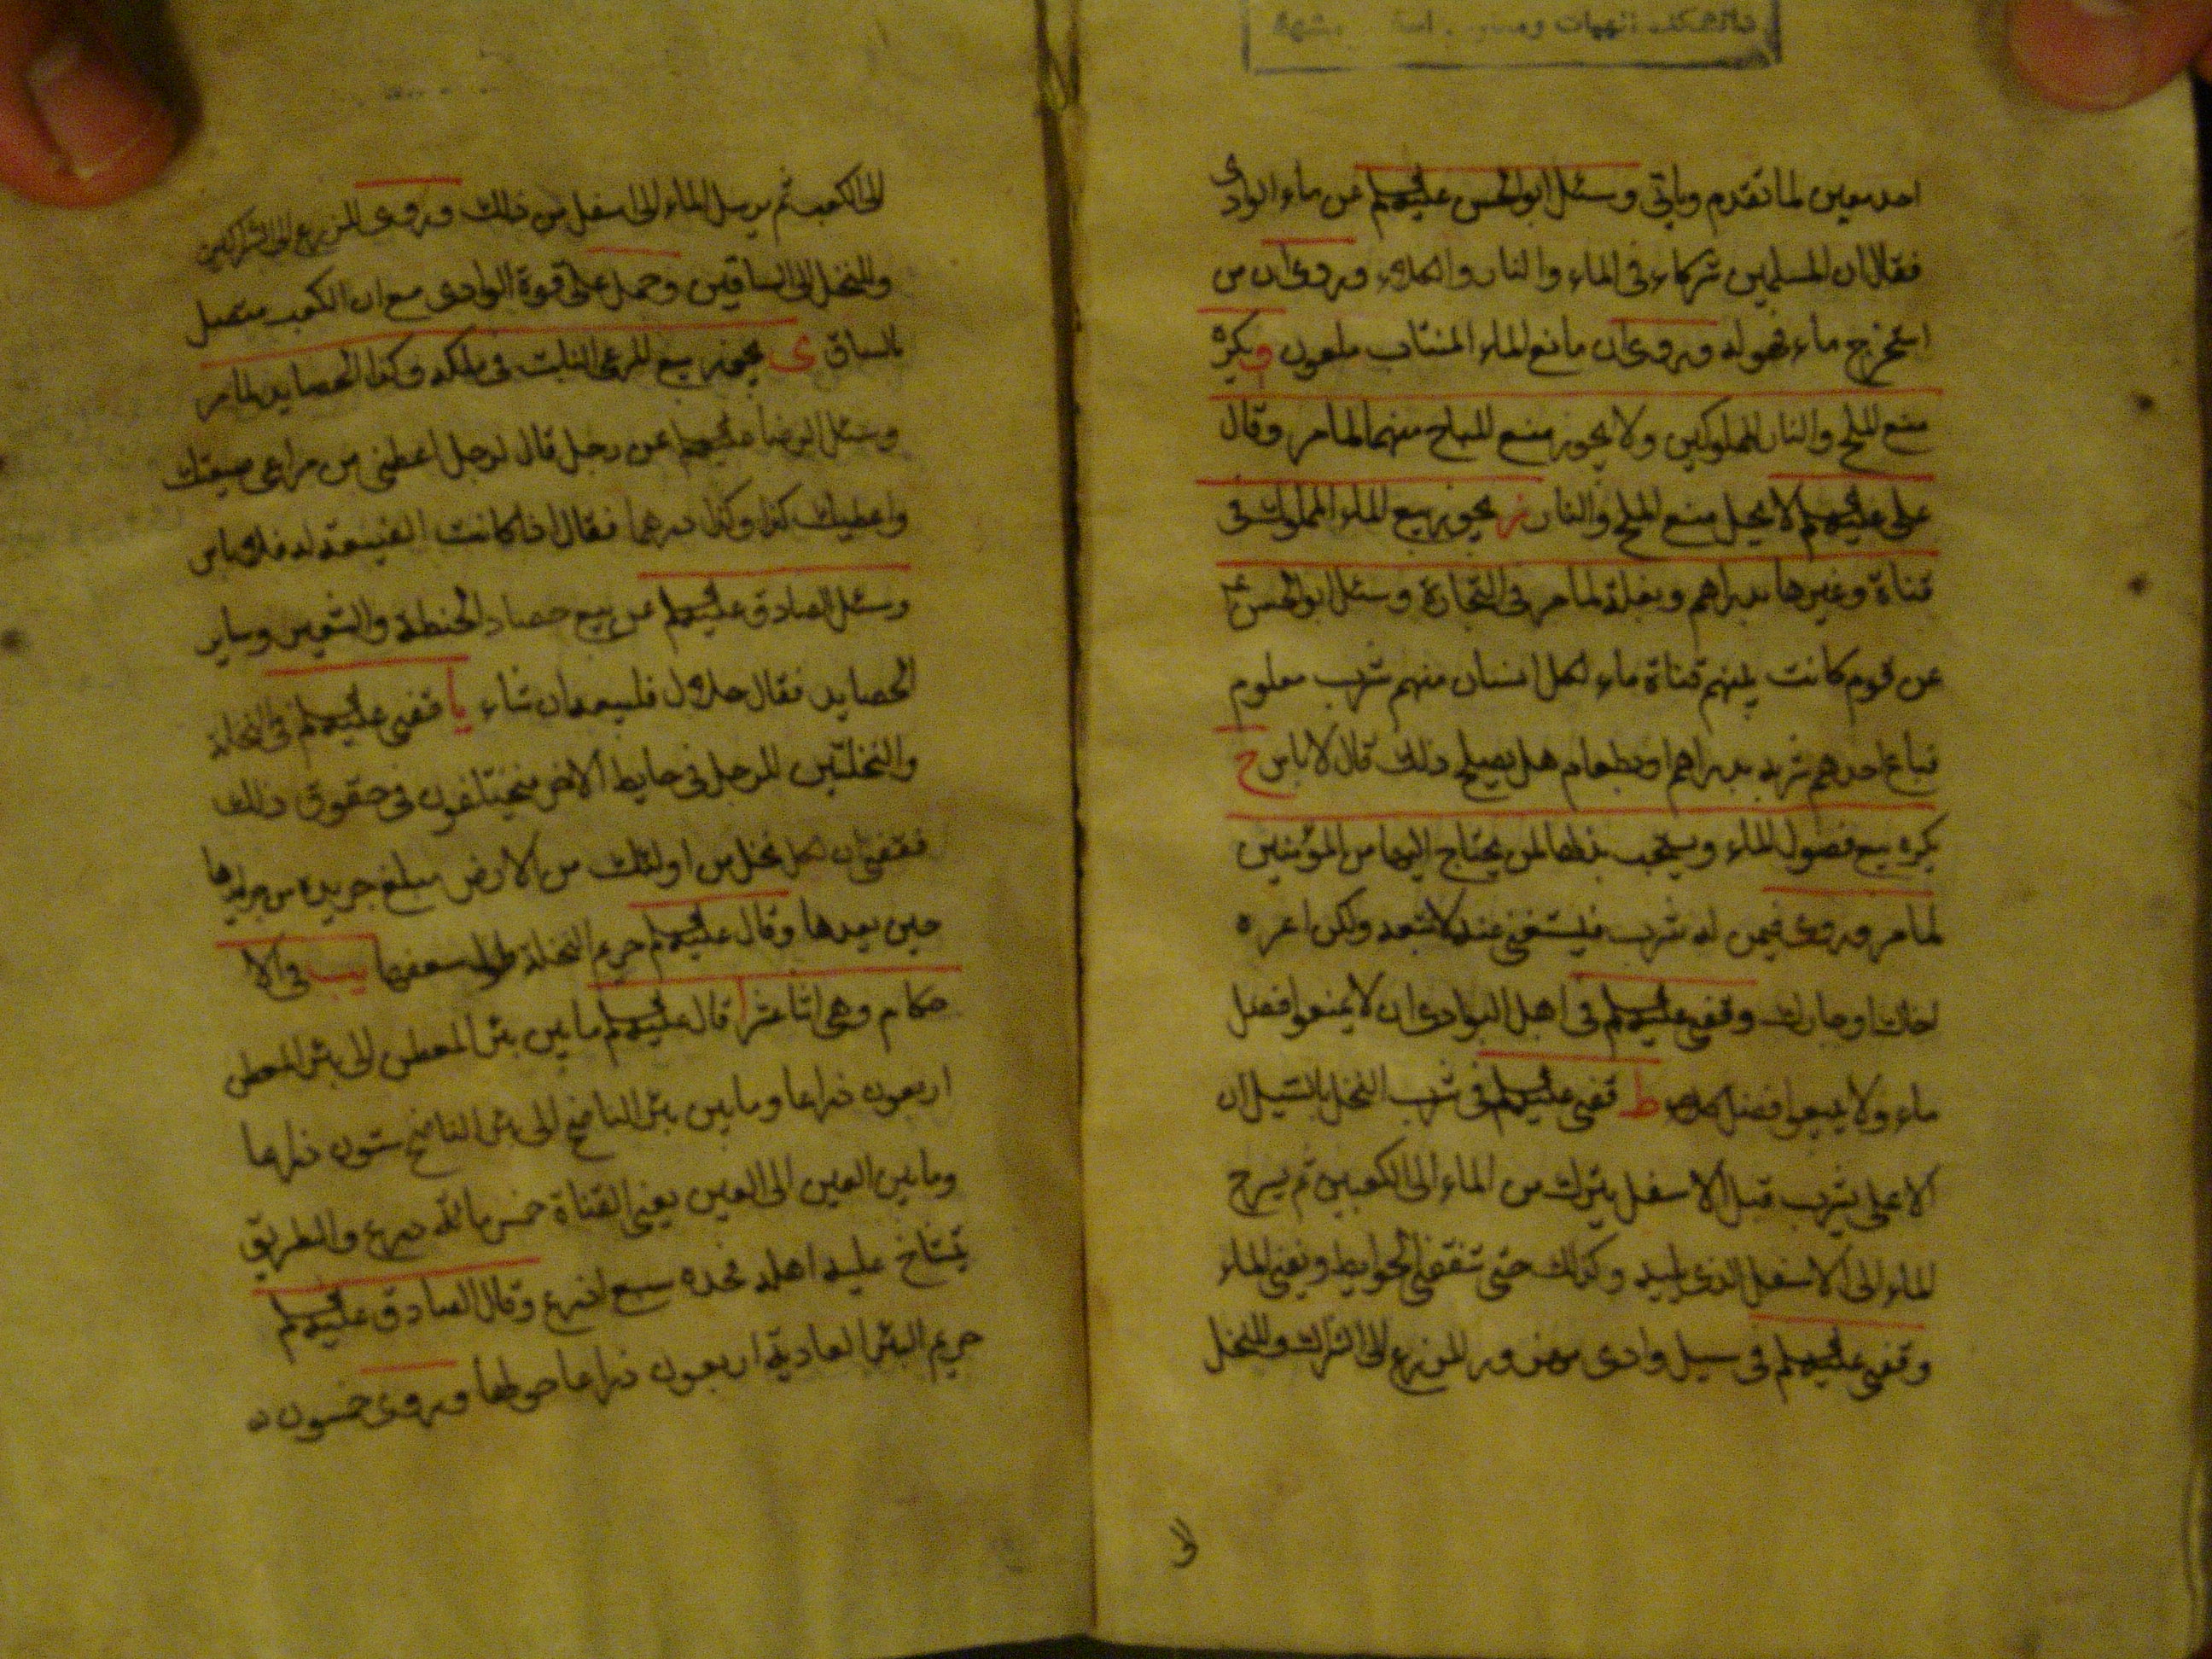 دانشكده الهيات ومعارف اسلامى مشهد
احد معين لما تقدم وياتى وسئل ابو الحسن عليه السلم عن ماء الوادى
فقال ان المسلمين شركاء فى الماء والنار والكلاء وروى ان من
استخرج ماء فهو له وروى ان مانع الماء المنتاب ملعون و يكره
منع الملح والنار المملوكين ولا يجوز منع المباح منهما لما مر وقال
على عليه السلم لا يحل منع الملح والنار ز يجوز بيع الماء المملوك فى
قناة وغيرها بدراهم وبغلة لما مر فى التجارة وسئل ابو الحسن ع
عن قوم كانت بينهم قناة ماء لكل انسان منهم شرب معلوم
فباع احدهم شربه بدراهم او بطعام هل يصلح ذلك قال لا باس ح
يكره بيع فضول الماء ويستحب بذلها لمن يحتاج اليها من المؤمنين
لما مر وروى فيمن له شرب فيستغنى عنه لا تبعه ولكن اعره
اخاك او جارك وقضى عليه السلم فى اهل البوادى ان لا يمنعوا فضل
ماء ولا يبيعوا فضل كلاء ط قضى عليه السلم فى شرب النخل بالسيل ان
الاعلى يشرب قبل الاسفل يترك من الماء الى الكعبين ثم يسرح
الماء الى الاسفل الذى يليه وكذلك حتى تنقضى الحوايط ويفنى الماء
وقضى عليه السلم فى سيل وادى مهزور للزرع الى الشراك وللنخل
الى
الى الكعب ثم يرسل الماء الى اسفل من ذلك وروى للزرع الى الشراكين
وللنخل الى الساقين وحمل على قوة الوادى مع ان الكعب متصل
بالساق ى يجوز بيع المرعى النابت فى ملكه وكذا الحصايد لما مر
وسئل الرضا عليه السلم عن رجل قال لرجل اعطنى من مراعى ضيعتك
واعطيك كذا وكذا درهما فقال اذا كانت الضيعة له فلا باس
وسئل الصادق عليه السلم عن بيع حصاد الحنطة والشعير وساير
الحصايد فقال حلال فليبعه ان شاء يا قضى عليه السلم فى النخلة
والنخلتين للرجل فى حايط الاخر فيختلفون فى حقوق ذلك
فقضى ان لكل نخل من اولئك من الارض مبلغ جريدة من جرايدها
حين بعدها وقال عليه السلم حريم النخلة طول سعفها يب فى الا
حكام وهى اثنا عشر ا قال عليه السلم ما بين بئر المعطن الى بئر المعطن
اربعون ذراعا وما بين بئر الناضح الى بئر الناضح ستون ذراعا
وما بين العين الى العين يعنى القناة خمس مائة ذراع والطريق
يتشاح عليه اهله فحده سبع اذرع وقال الصادق عليه السلم
حريم البئر العادية اربعون ذراعا حولها وروى خمسون ذ